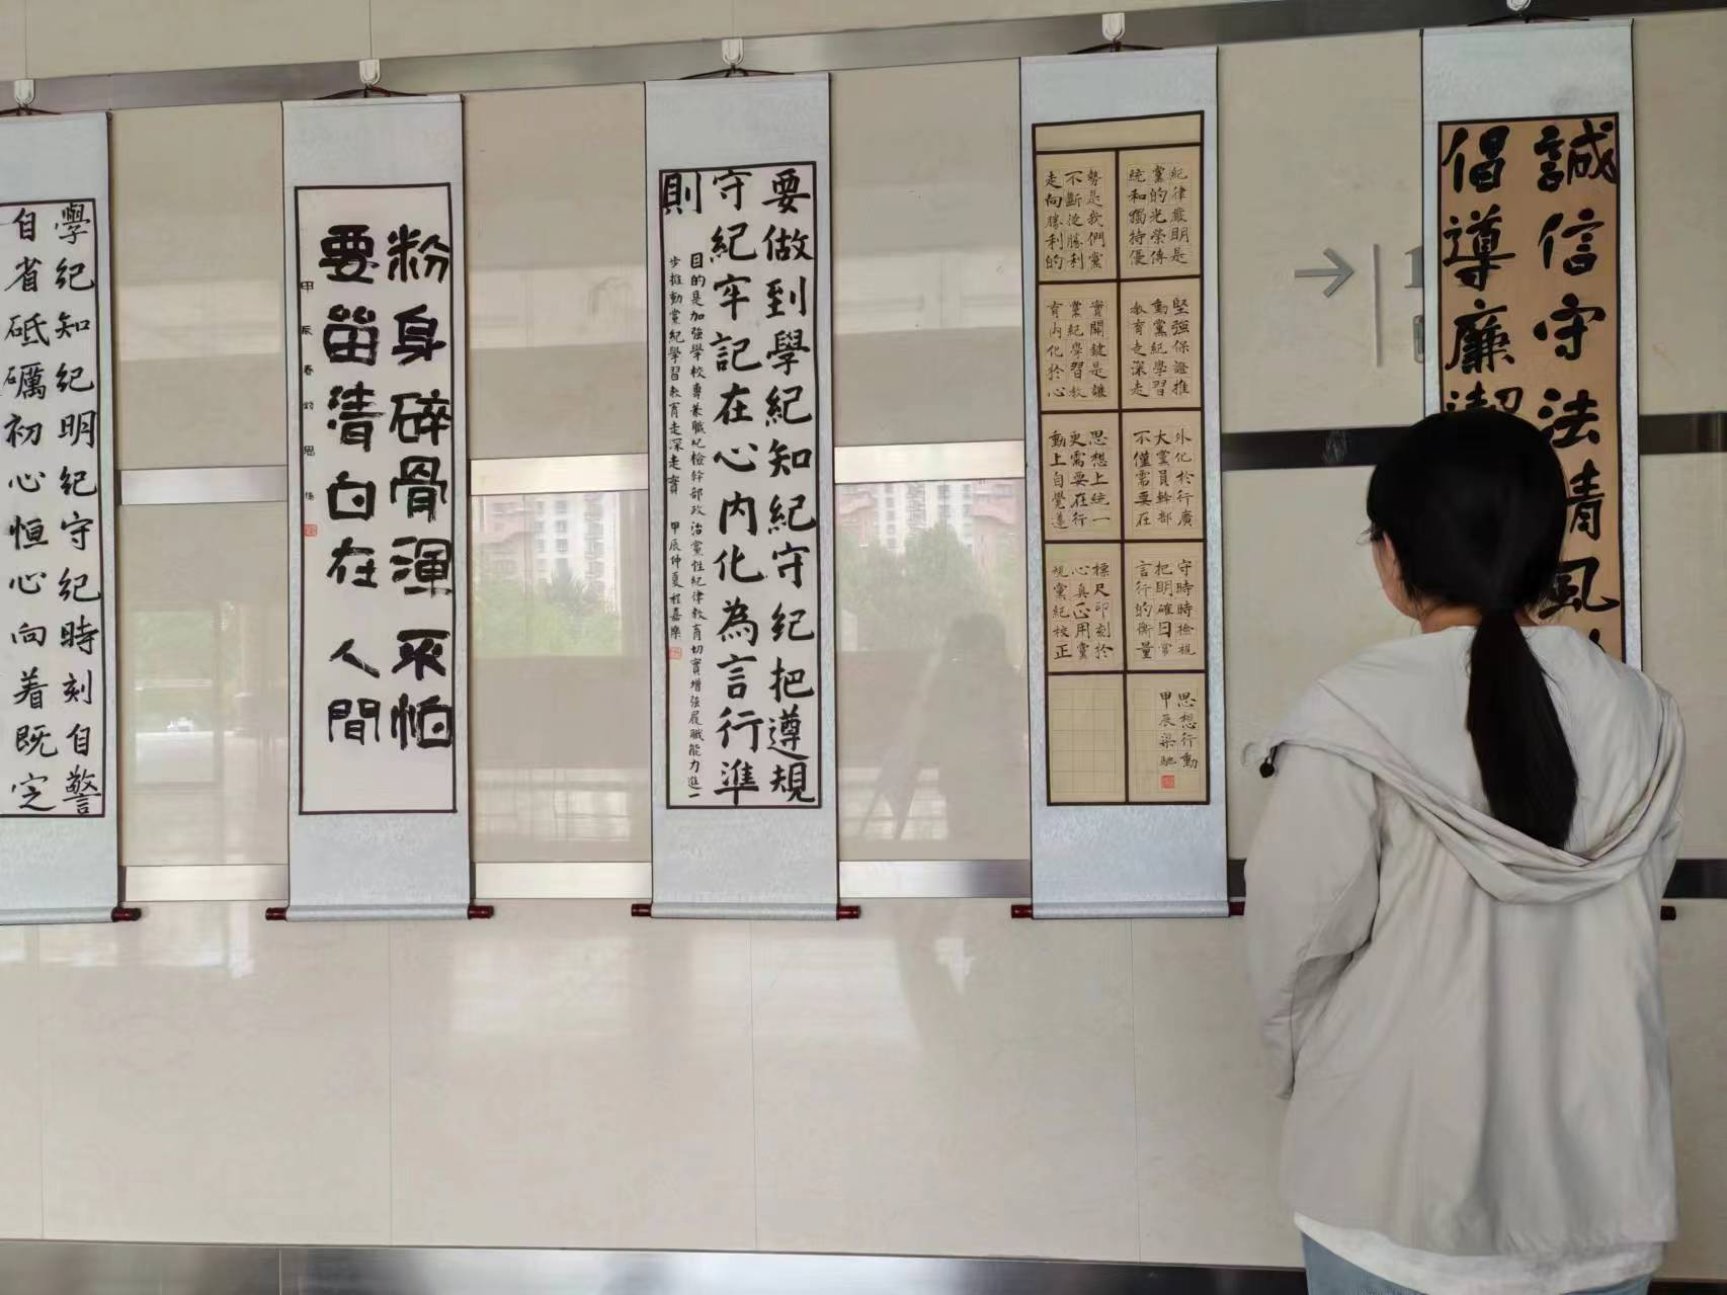 誠信守法清風
倡導廉潔
紀律嚴明是
黨的光榮傳
統和獨特優
勢是我們黨
不斷從勝利
走向勝利的
堅強保證推
動黨紀學習
教育走深走
實關鍵是讓
黨紀學習教
育內化於心
外化於行廣
大黨員幹部
不僅需要在
思想上統一
更需要在行
動上自覺遵
守時時檢視
把明確日常
言行的衡量
標尺印刻於
心真正用黨
規黨紀校正
思想行動
甲辰梁馳
要做到學紀知紀守紀把遵規
守紀牢記在心內化為言行準
則
目的是加強學校專兼職紀檢幹部政治黨性紀律教育切實增強履職能力進一
步推動黨紀學習教育走深走實 甲辰仲夏程嘉樂
粉身碎骨渾不怕
要留清白在人間
甲辰春
學紀知紀明紀守紀時刻自警
自省砥礪初心恒心向着既定